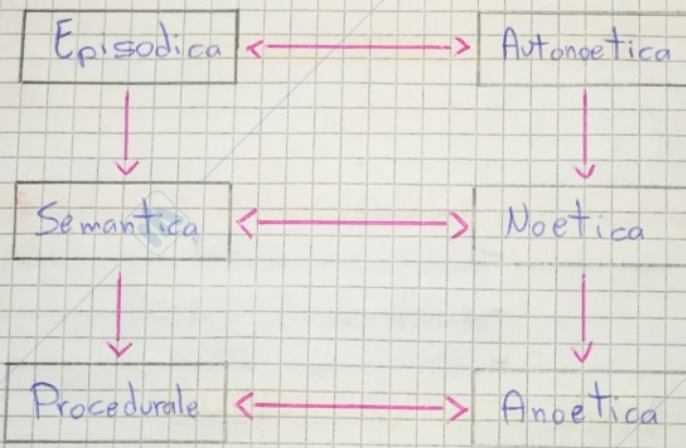 Episodica Autonoetica
Semantica Noetica
Procedurale Anoetica